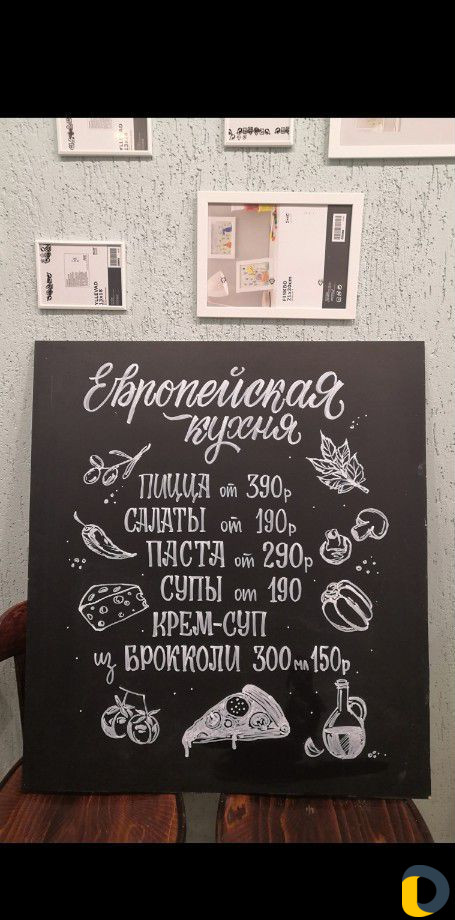 FISKBO
21x30cm
YLLEVAD
13x18
Европейская
кухня
ПИЦЦА от 390р
САЛАТЫ от 190р
ПАСТА от 290р
СУПЫ от 190
КРЕМ-СУП
из БРОККОЛИ 300 мл 150р